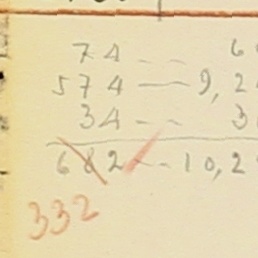 74 -- 6
574 — 9,2
34 -- 3
682 -- 10,2
332